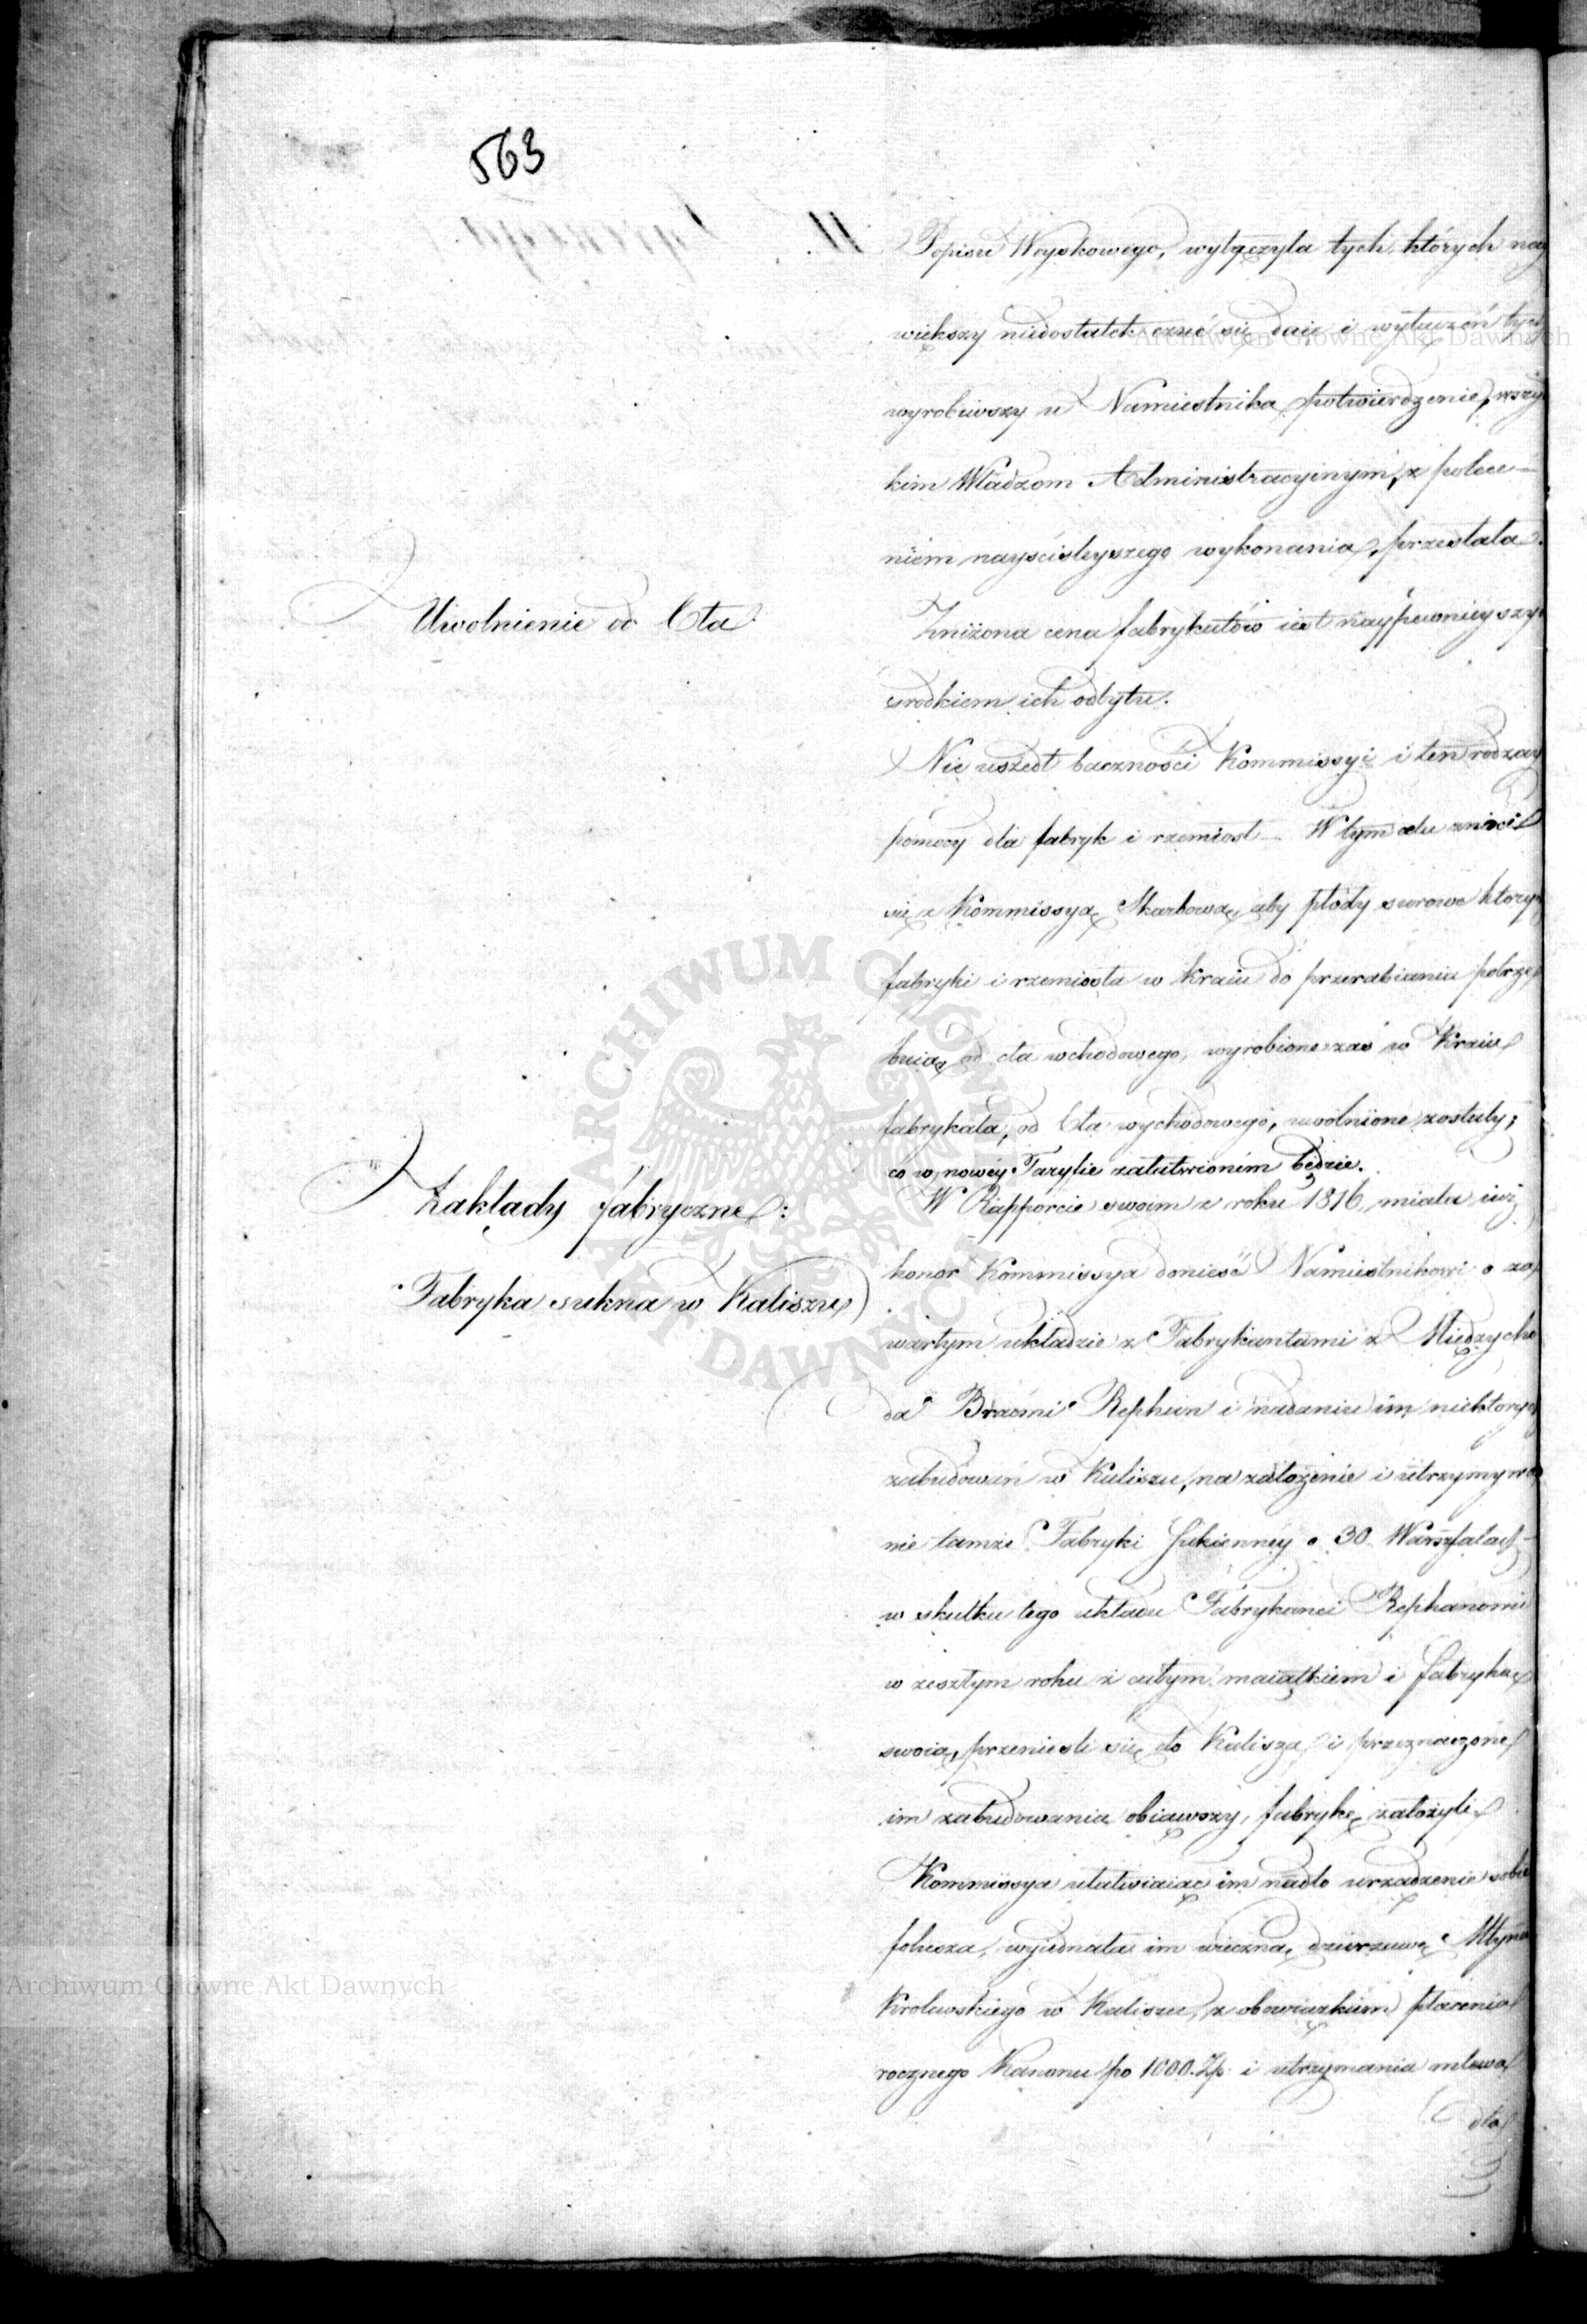 563
Popisu Woyskowego, wyłączyła tych, których nay
większy niedostatek czuć się daie i wyłączeń tych
wyrobiwszy u Namiestnika potwierdzenie, wszyst
kim Władzom Administracyinym, z polece-
niem nayściśleyszego wykonania, przesłała.
Uwolnienie od Cła
Zniżona cena fabrykatów iest naypewnieyszym
srodkiem ich odbytu.
Nie uszedł baczności Kommissyi i ten rodzay
pomocy dla fabryk i rzemiosł - W tym celu zniosła
się z Kommissyą Skarbową, aby płody surowe których
fabryki i rzemiosła w kraiu do przerabiania potrze
buią, od cła wchodowego, wyrobione zaś w Kraiu
fabrykata, od Cła wychodowego, uwolnione zostały;
co w nowéy Taryfie załatwioném będzie.
Zakłady fabryczne:
W Rapporcie swoim z roku 1816, miała iuż
honor Kommissya donieść Namiestnikowi o za
Fabryka sukna w Kaliszu
wartym układzie z Fabrykantami z Międzycho
da Braćmi Rephan i nadaniu im niektórych
zabudowań w Kaliszu, na założenie i utrzymywa
nie tamże Fabryki Sukienney o 30 Warsztatach
w skutku tego układu Fabrykanci Rephanowie
w zeszłym roku z całym maiątkiem i fabryką
swoią, przenieśli się do Kalisza i przeznaczone
im zabudowania obiąwszy, fabrykę założyli
Kommissya ułatwiaiąc im nadto urządzenie sobie
folusza, wyiednała im wieczną dzierzawę Młyna
Krolewskiego w Kaliszu, z obowiązkiem płacenia
rocznego Kanonu po 1000. Zp. i utrzymania mlewa
dla
Archiwum Główne Akt Dawnych
Archiwum Główne Akt Dawnych
ARCHIWUM GŁÓWNE AKT DAWNYCH